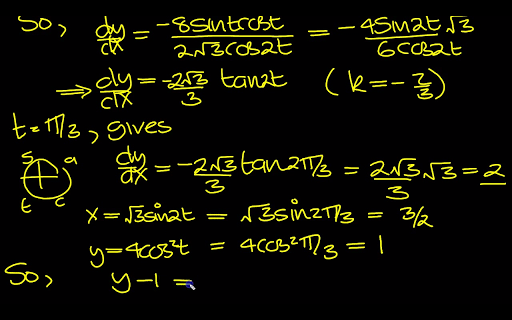 So, dy/dx = -8sintcost / 2√3cos2t = -4sin2t√3 / 6cos2t
⟹ dy/dx = -2√3/3 tan2t (k = -2/3)
t = π/3, gives
s a
t c
dy/dx = -2√3/3 tan2π/3 = 2√3/3 √3 = 2
x = √3sin2t = √3sin2π/3 = 3/2
y = 4cos²t = 4cos²π/3 = 1
So, y-1 =